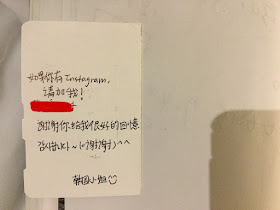 如果你有 Instagram,
請加我!
謝謝你給我很好的回憶.
감사합니다 ~ (=謝謝) ^^
韓国小姐 ☺